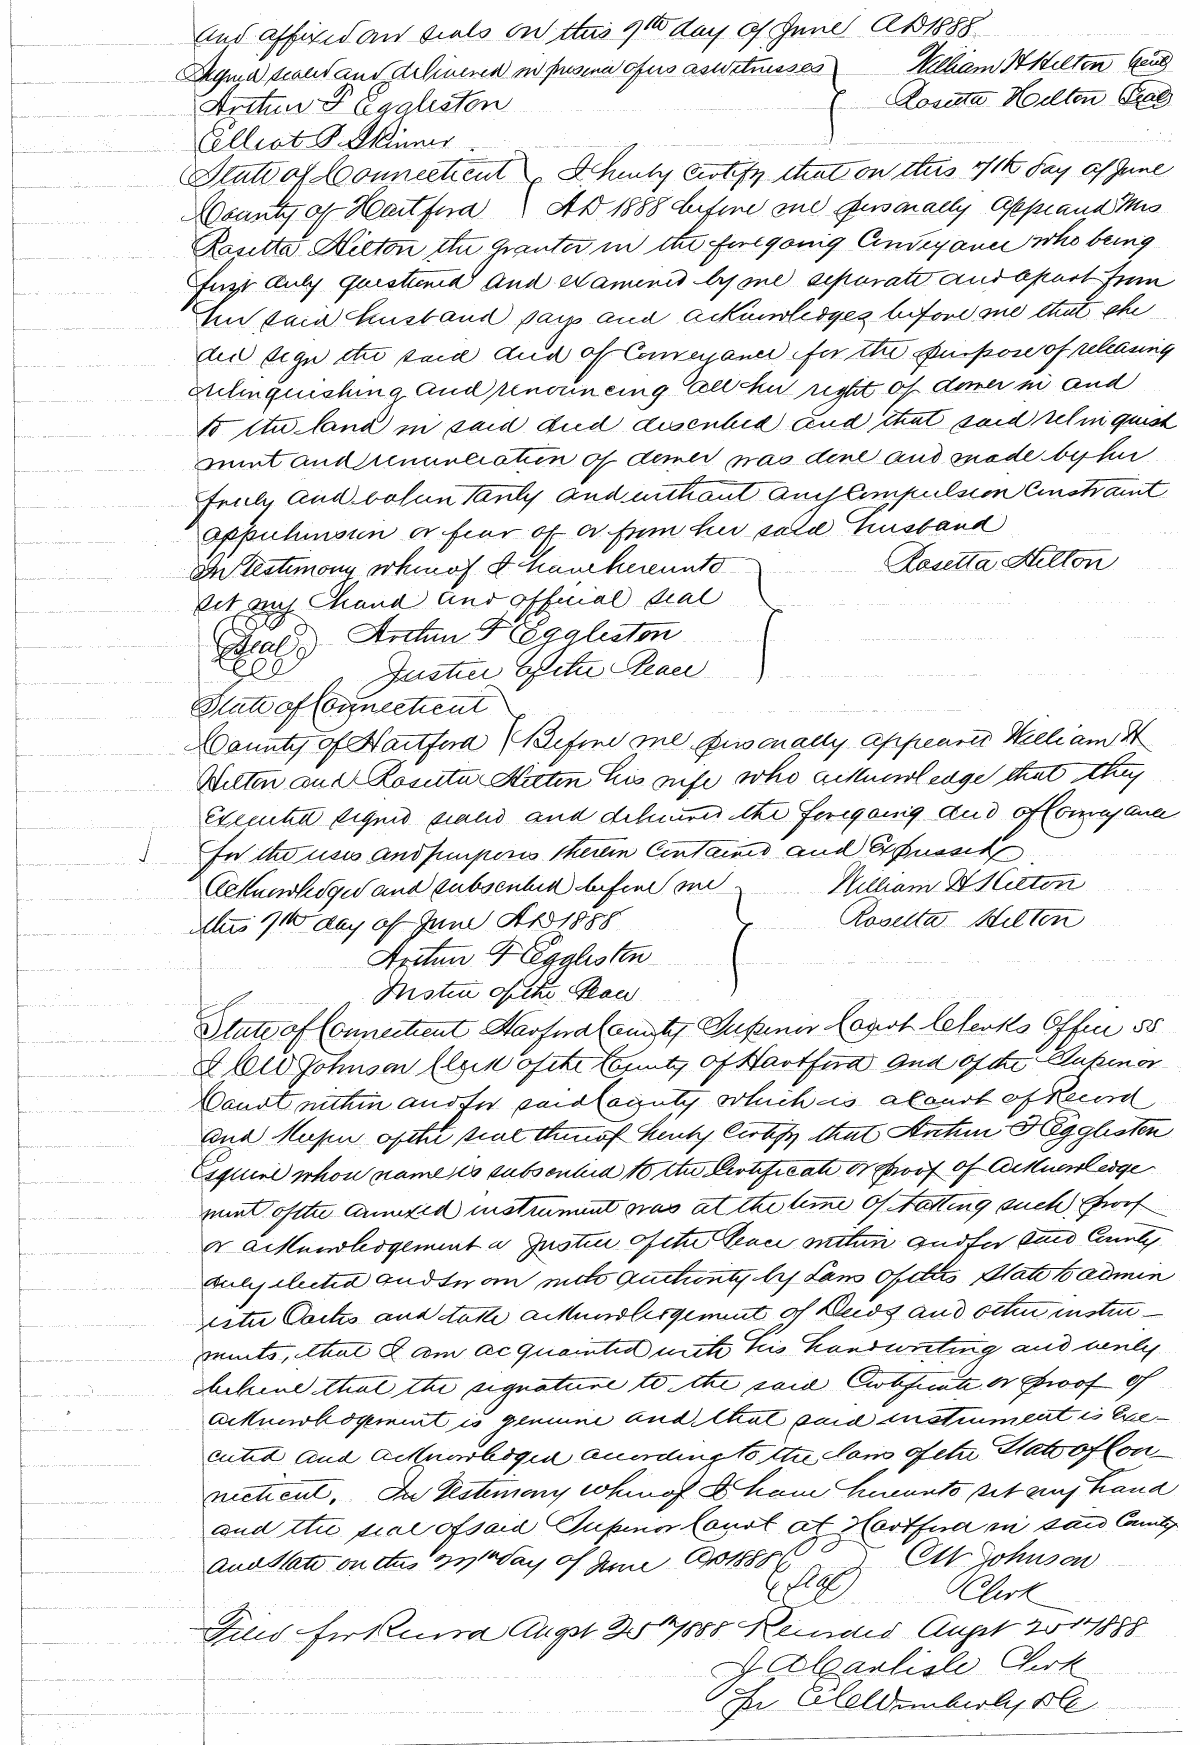 and affixed our seals on this 9th day of June AD 1888
Signed sealed and delivered in presence of us as witnesses William H Hilton (Seal)
Arthur F Eggleston Rosetta Hilton (Seal)
Elliot P Skinner
State of Connecticut I hereby certify that on this 9th day of June
County of Hartford AD 1888 before me personally appeared Mrs
Rosetta Hilton the grantor in the foregoing Conveyance who being
first duly questioned and examined by me separate and apart from
her said husband says and acknowledges before me that she
did sign the said deed of Conveyance for the purpose of releasing
relinquishing and renouncing all her right of dower in and
to the land in said deed described and that said relinquish
ment and renunciation of dower was done and made by her
freely and voluntarily and without any Compulsion Constraint
apprehension or fear of or from her said husband
In Testimony whereof I have hereunto Rosetta Hilton
set my hand and official seal
(Seal) Arthur F Eggleston
Justice of the Peace
State of Connecticut
County of Hartford Before me personally appeared William H
Hilton and Rosetta Hilton his wife who acknowledge that they
executed signed sealed and delivered the foregoing deed of Conveyance
for the uses and purposes therein Contained and Expressed
Acknowledged and subscribed before me William H Hilton
this 9th day of June AD 1888 Rosetta Hilton
Arthur F Eggleston
Justice of the Peace
State of Connecticut Harford County Superior Court Clerks Office SS
I CW Johnson Clerk of the County of Hartford and of the Superior
Court within and for said County which is a Court of Record
and Keeper of the seal thereof hereby Certify that Arthur F Eggleston
Esquire whose name is subscribed to the Certificate or proof of Acknowledge
ment of the annexed instrument was at the time of taking such proof
or acknowledgement a Justice of the Peace within and for said County
duly elected and sworn with authority by Laws of this State to admin
ister Oaths and take acknowledgement of Deeds and other instru-
ments, that I am acquainted with his handwriting and verily
believe that the signature to the said Certificate or proof of
acknowledgement is genuine and that said instrument is Exe-
cuted and acknowledged according to the laws of the State of Con-
necticut. In Testimony whereof I have hereunto set my hand
and the seal of said Superior Court at Hartford in said County
and State on this day of June AD 1888 CW Johnson
(Seal) Clerk
Filed for Record Augst 25th 1888 Recorded Augst 25th 1888
J A Carlisle Clerk
Pr DC